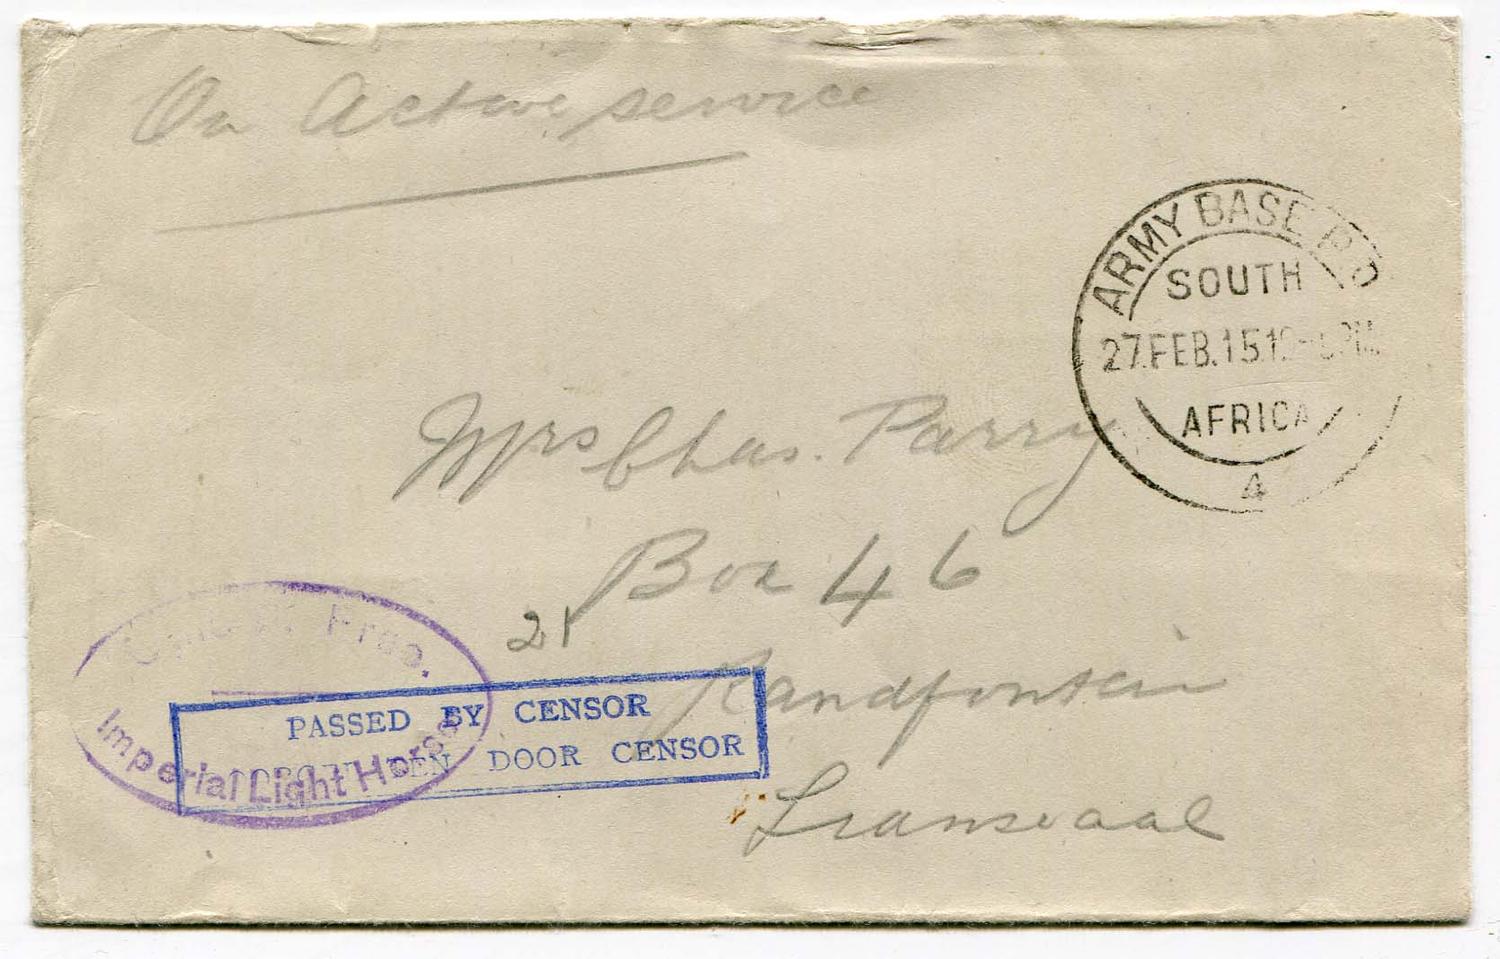 On Active service
ARMY BASE P.O
SOUTH
27.FEB.15
AFRICA
4
Mrs Chas. Parry
Box 46
21
Randfontein
Transvaal
Imperial Light Horse
PASSED BY CENSOR
DOOR CENSOR